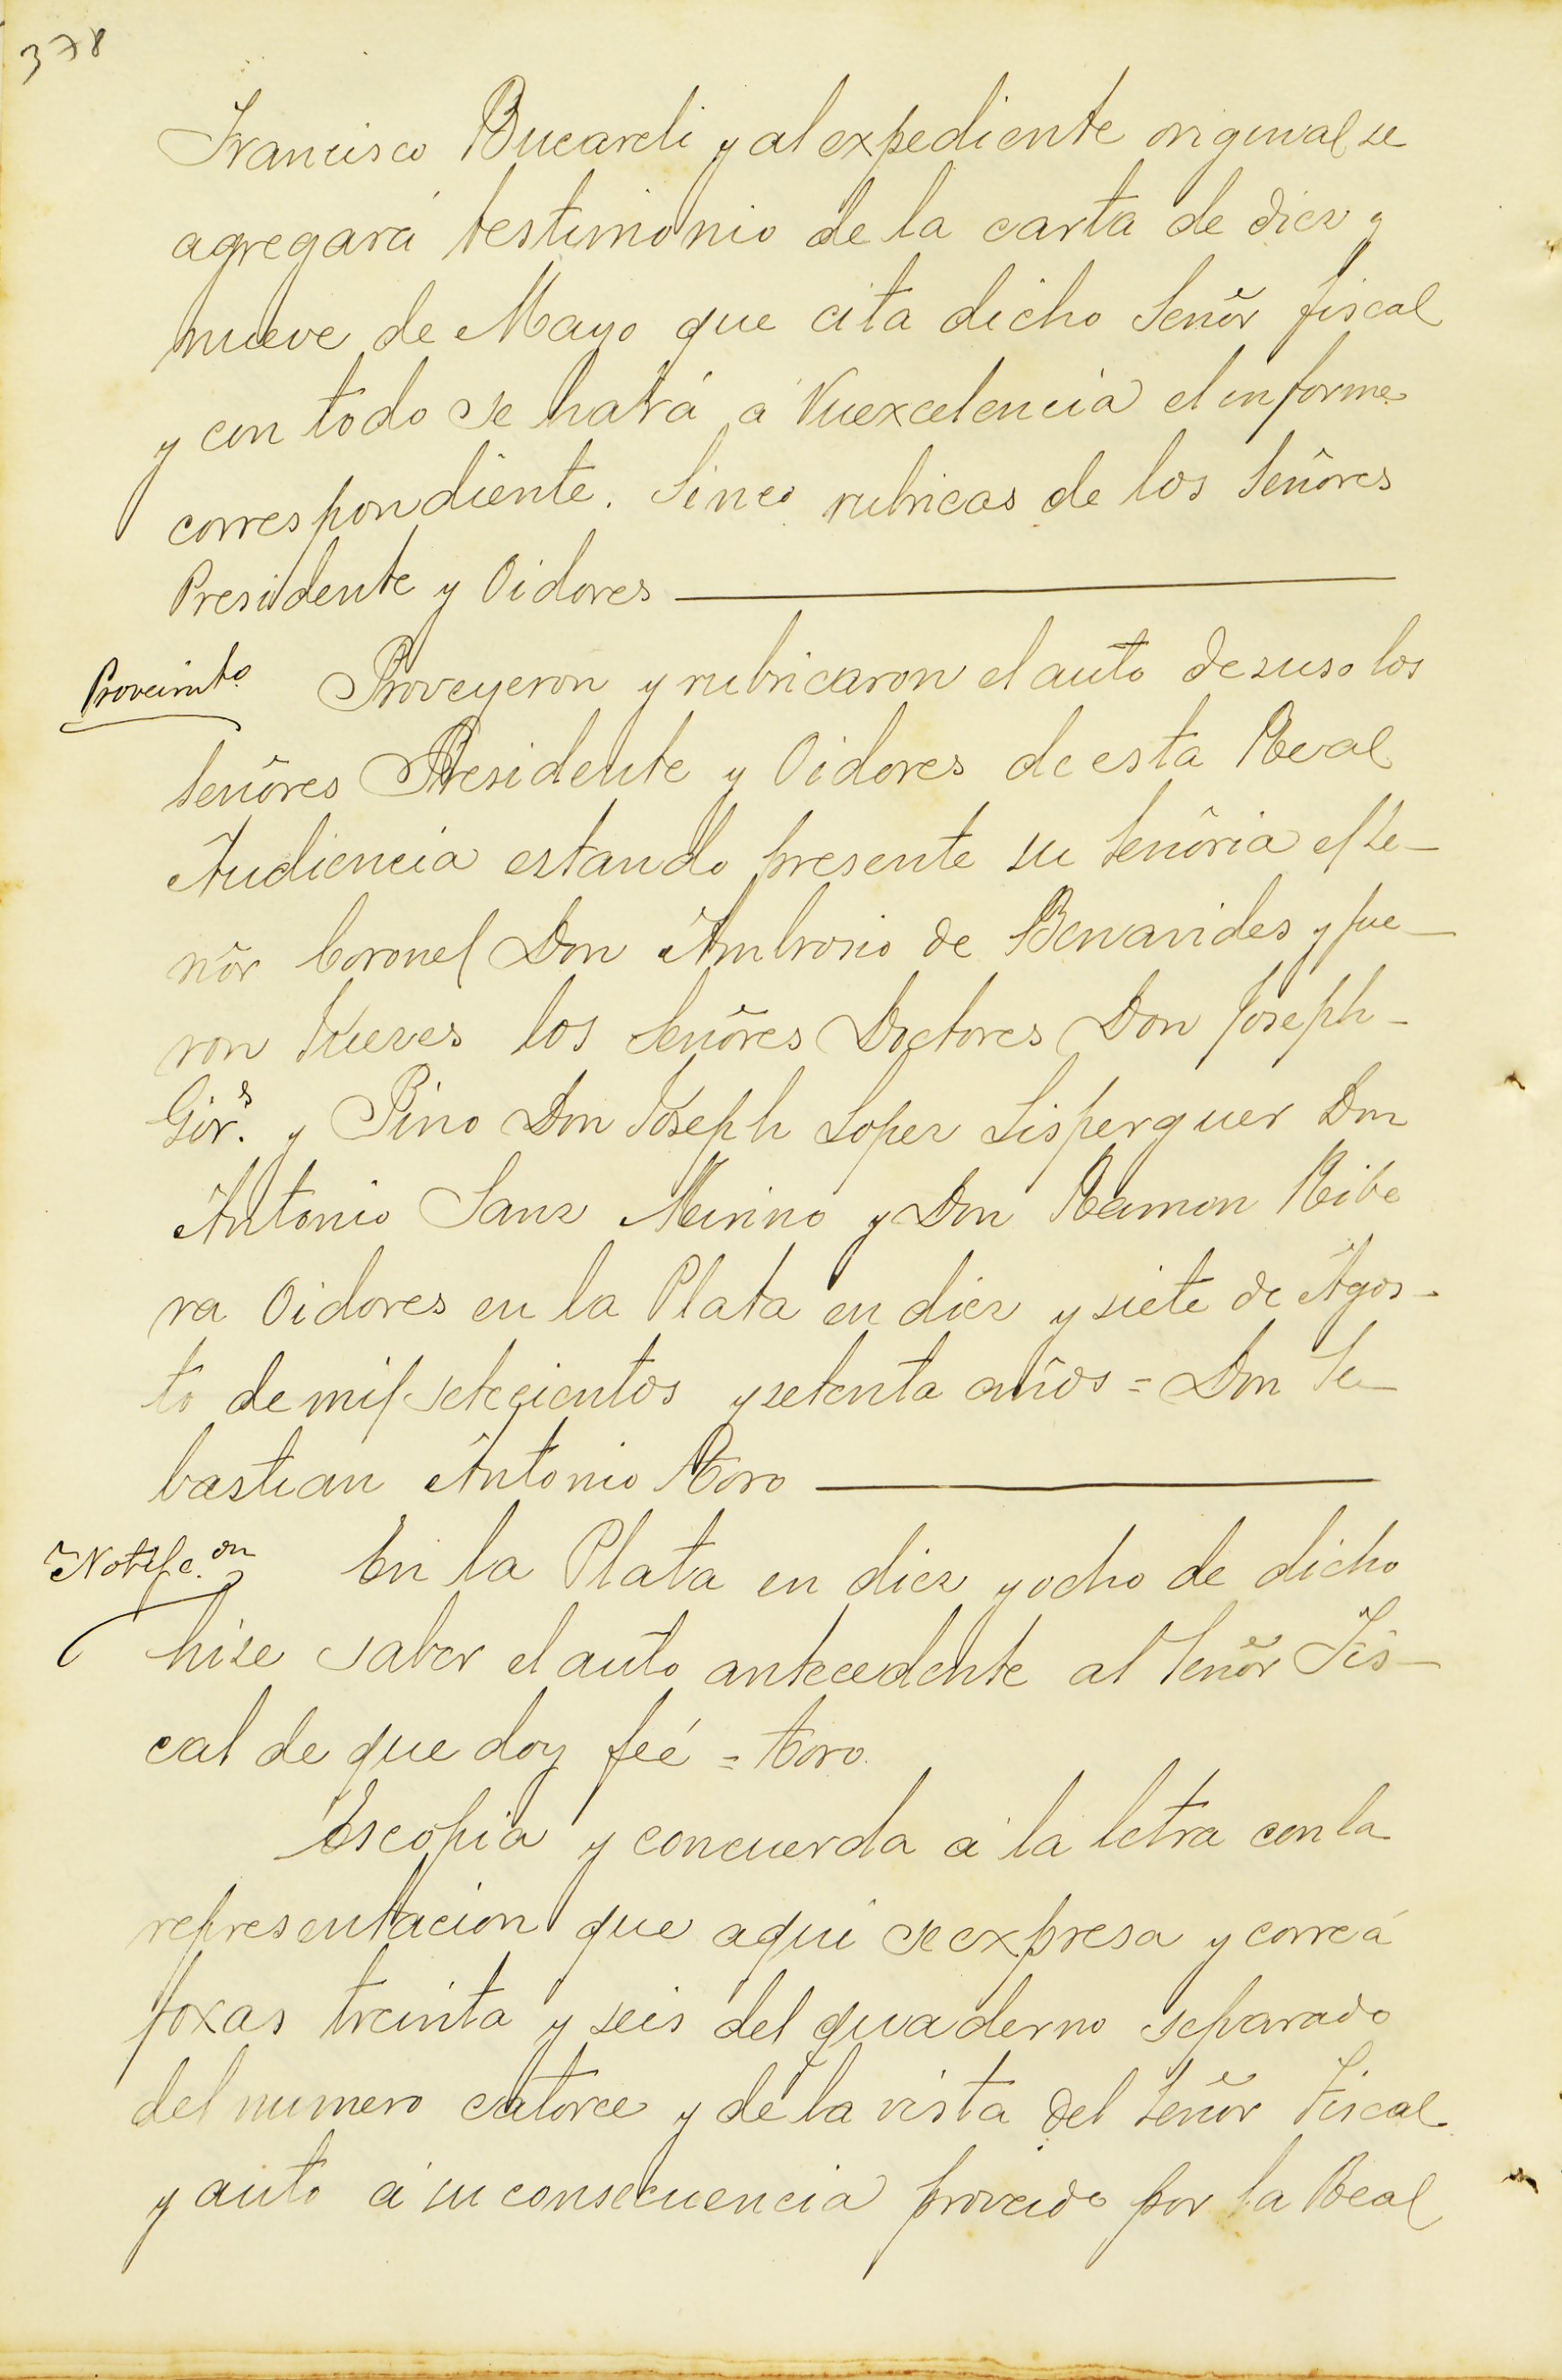 378
Francisco Bucareli y al expediente original se
agregará testimonio de la carta de diez y
nueve de Mayo que cita dicho Señor fiscal
y con todo se hará á Vuexcelencia el informe
correspondiente. Sinco rubricas de los Señores
Presidente y Oidores
Proveimto. Proveyeron y rubricaron el auto desuso los
Señores Presidente y Oidores de esta Real
Audiencia estando presente su Señoria el Se-
ñor Coronel Don Ambrosio de Benavides y fue-
ron Jueses los Señores Doctores Don Joseph-
y Pino Don Joseph Lopez Lisperguer Don
Antonio Sanz Merino y Don Ramon Ribe
ra Oidores en la Plata en diez y siete de Agos-
to de mil setecientos y setenta años = Don Se-
bastian Antonio Toro
Notifc.on En la Plata en diez y ocho de dicho
hise saber el auto antecedente al Señor Fis-
cal de que doy feé = Toro.
Escopia y concuerda á la letra con la
representacion que aqui se expresa y corre á
foxas treinta y seis del quaderno separado
del numero catorce y de la vista del Señor Fiscal
y auto á su consecuencia proveido por la Real